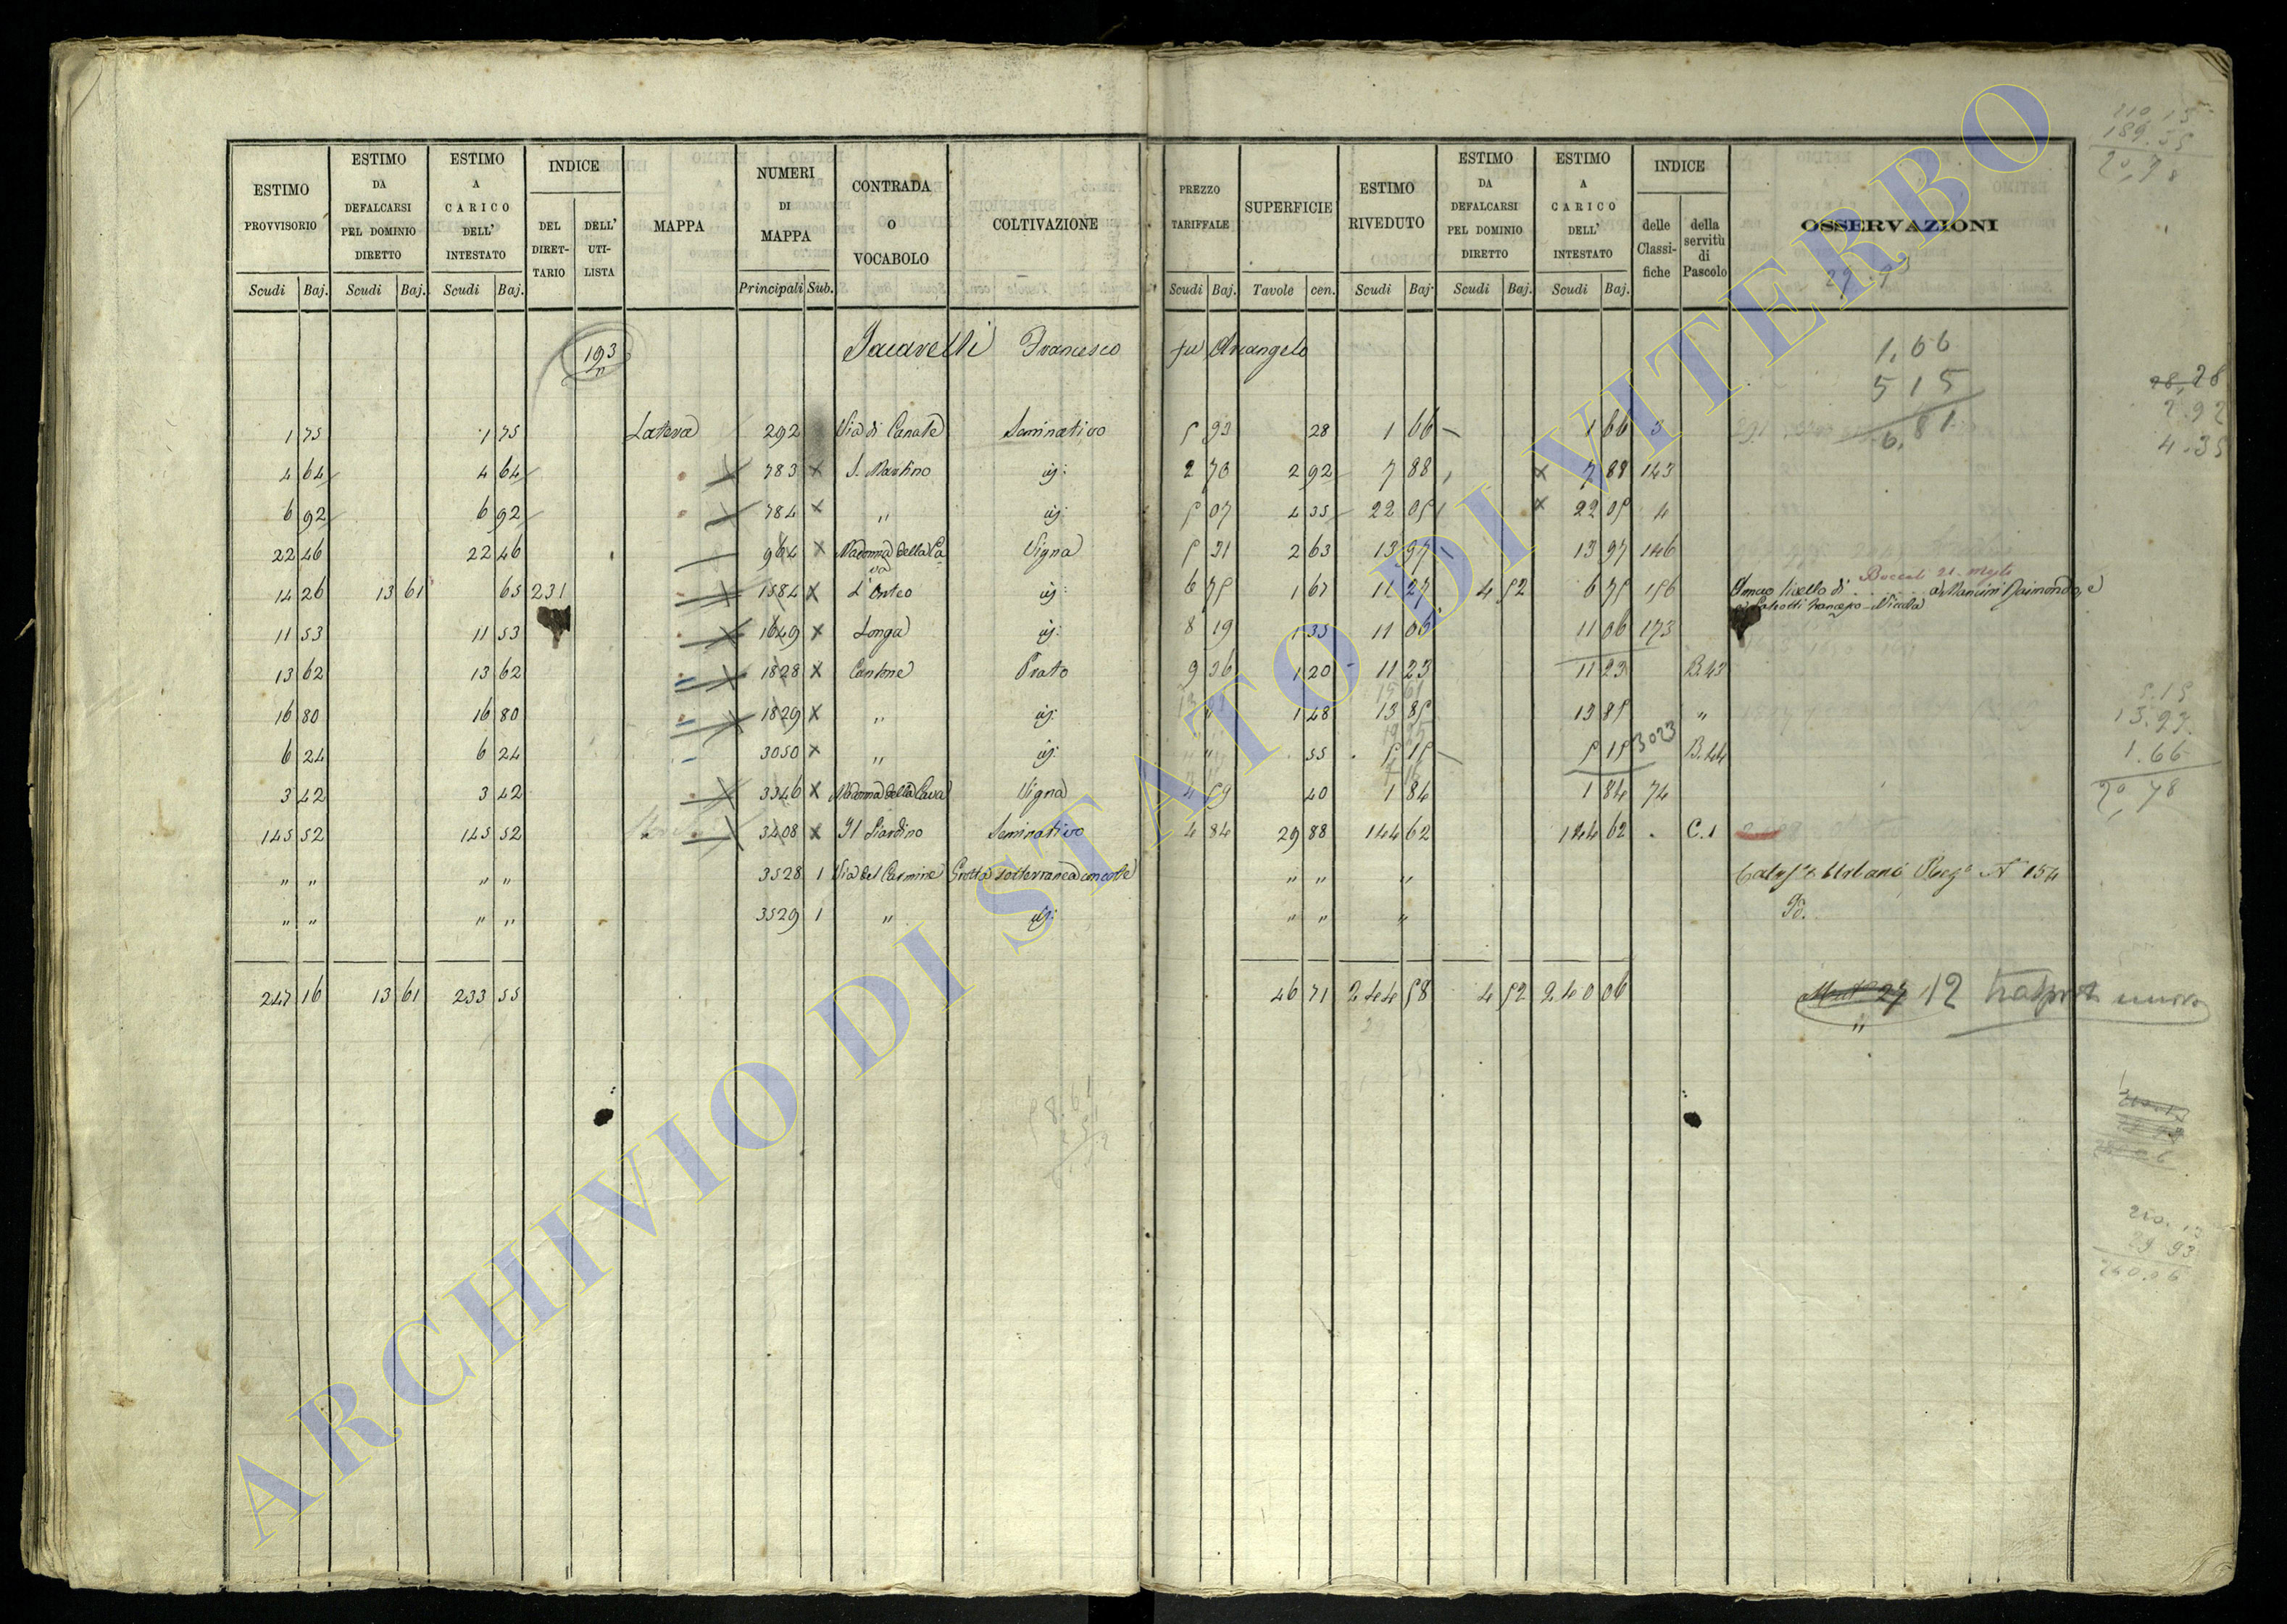 ESTIMO PROVVISORIO Scudi Baj.
ESTIMO DA DEFALCARSI PEL DOMINIO DIRETTO Scudi Baj.
ESTIMO A CARICO DELL' INTESTATO Scudi Baj.
INDICE DEL DIRETTARIO DELL' UTILISTA
MAPPA
NUMERI DI MAPPA Principali Sub.
CONTRADA O VOCABOLO
COLTIVAZIONE
PREZZO TARIFFALE Scudi Baj.
SUPERFICIE Tavole cen.
ESTIMO RIVEDUTO Scudi Baj.
ESTIMO DA DEFALCARSI PEL DOMINIO DIRETTO Scudi Baj.
ESTIMO A CARICO DELL' INTESTATO Scudi Baj.
INDICE delle Classifiche della servitù di Pascolo
OSSERVAZIONI
193 Francesco fu Arcangelo
1 75 1 75 Latera 292 Via di Canale Seminativo 5 93 28 1 66 1 66 3
4 64 4 64 " 783 S. Martino id: 2 70 2 92 7 88 7 88 143
6 92 6 92 " 784 " id: 5 07 4 35 22 05 22 05 4
22 46 22 46 964 Madonna della Cava Vigna 5 31 2 63 13 97 13 97 146
14 26 13 61 65 231 " 1584 L'Orteo id: 6 75 1 67 11 27 4 52 6 75 156
11 53 11 53 " 1649 Longa id: 8 19 1 35 11 06 11 06 173
13 62 13 62 " 1828 Cantone Prato 9 36 1 20 11 23 11 23 B.43
16 80 16 80 " 1829 " id: " 1 48 13 85 13 85 "
6 24 6 24 " 3050 " id: " 55 5 15 5 15 3023 B.44
3 42 3 42 " 3346 Madonna della Cava Vigna 4 59 40 1 84 1 84 74
145 52 145 52 " 3408 Il Giardino Seminativo 4 84 29 88 144 62 144 62 C.1
" " " " 3528 1 Via del Carmine Grotta sotterranea con corte " " " Urbano N° 154
" " " " 3529 1 " id: " " "
247 16 13 61 233 55 46 71 244 58 4 52 240 06 12
1,66
5 15
6,81
28,26
2.92
4.35
5.15
13.97
1.66
20,78
210.13
29 93
240.06
ARCHIVIO DI STATO DI VITERBO